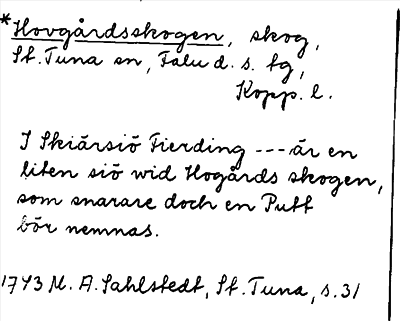 *Hovgårdsskogen, skog,
St. Tuna sn, Falu d. s. fg,
Kopp. l.
I Skiärsiö Fierding --- är en
liten siö wid Hogårds skogen,
som snarare doch en Putt
bör nemnas.
1743 M. A. Sahlstedt, St. Tuna, s. 31